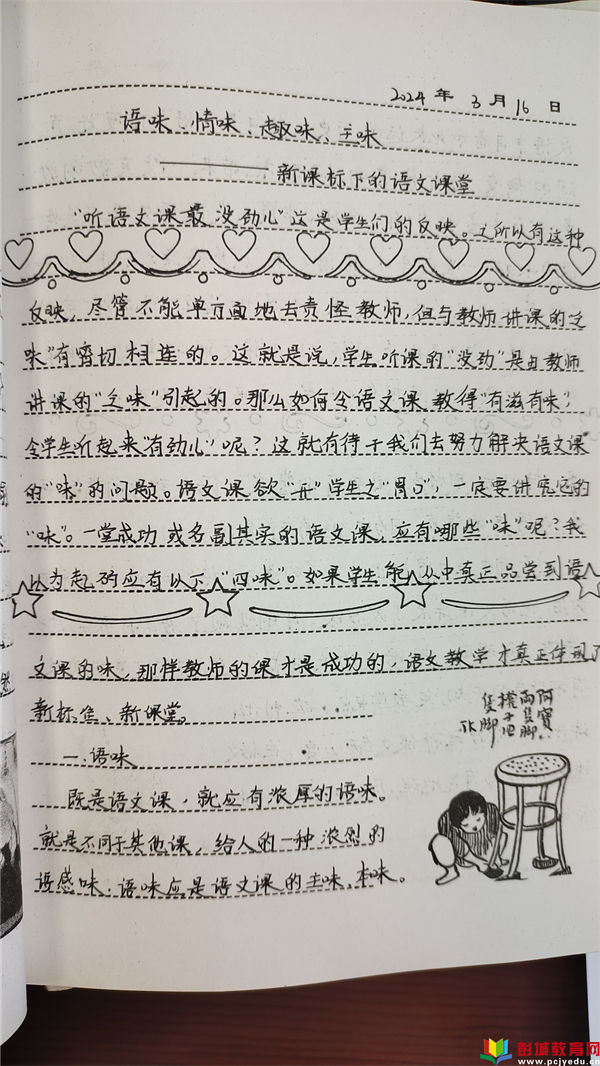 2024 年 3 月 16 日
语味、情味、趣味、主味
———— 新课标下的语文课堂
“听语文课最没劲儿”这是学生们的反映。之所以有这种
反映，尽管不能单方面地去责怪教师，但与教师讲课的“乏
味”有密切相连的。这就是说，学生听课的“没劲”是由教师
讲课的“乏味”引起的。那么如何令语文课教得“有滋有味”，
令学生听起来“有劲儿”呢？这就有待于我们去努力解决语文课
的“味”的问题。语文课欲“开”学生之“胃口”，一定要讲究它的
“味”。一堂成功或名副其实的语文课，应有哪些“味”呢？我
以为起码应有以下“四味”。如果学生能从中真正品尝到语
文课的味，那样教师的课才是成功的，语文教学才真正体现了
新标准、新课堂。
一.语味
既是语文课，就应有浓厚的语味。
就是不同于其他课，给人的一种浓烈的
语感味.语味应是语文课的主味.本味。
阿寶
兩隻腳
櫈子四
隻腳
彭城教育网
www.pcjyedu.cn